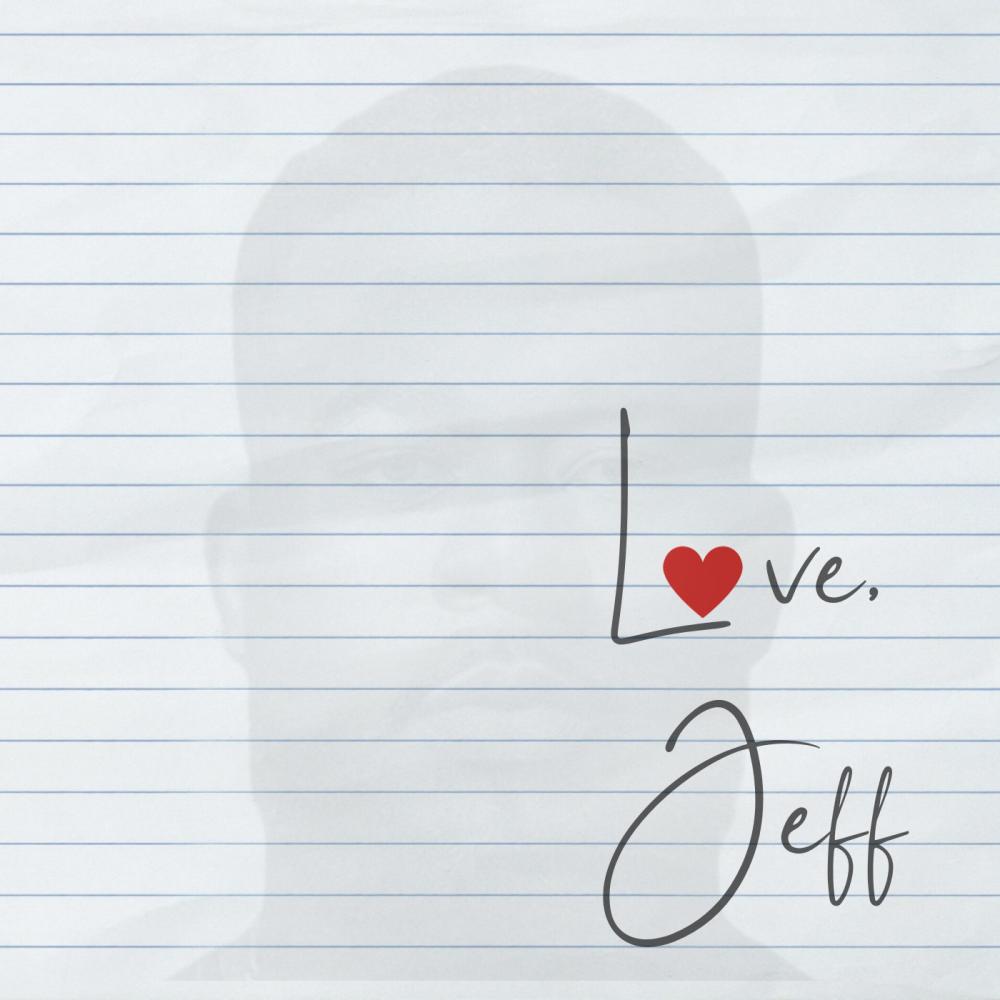 Love,
Jeff